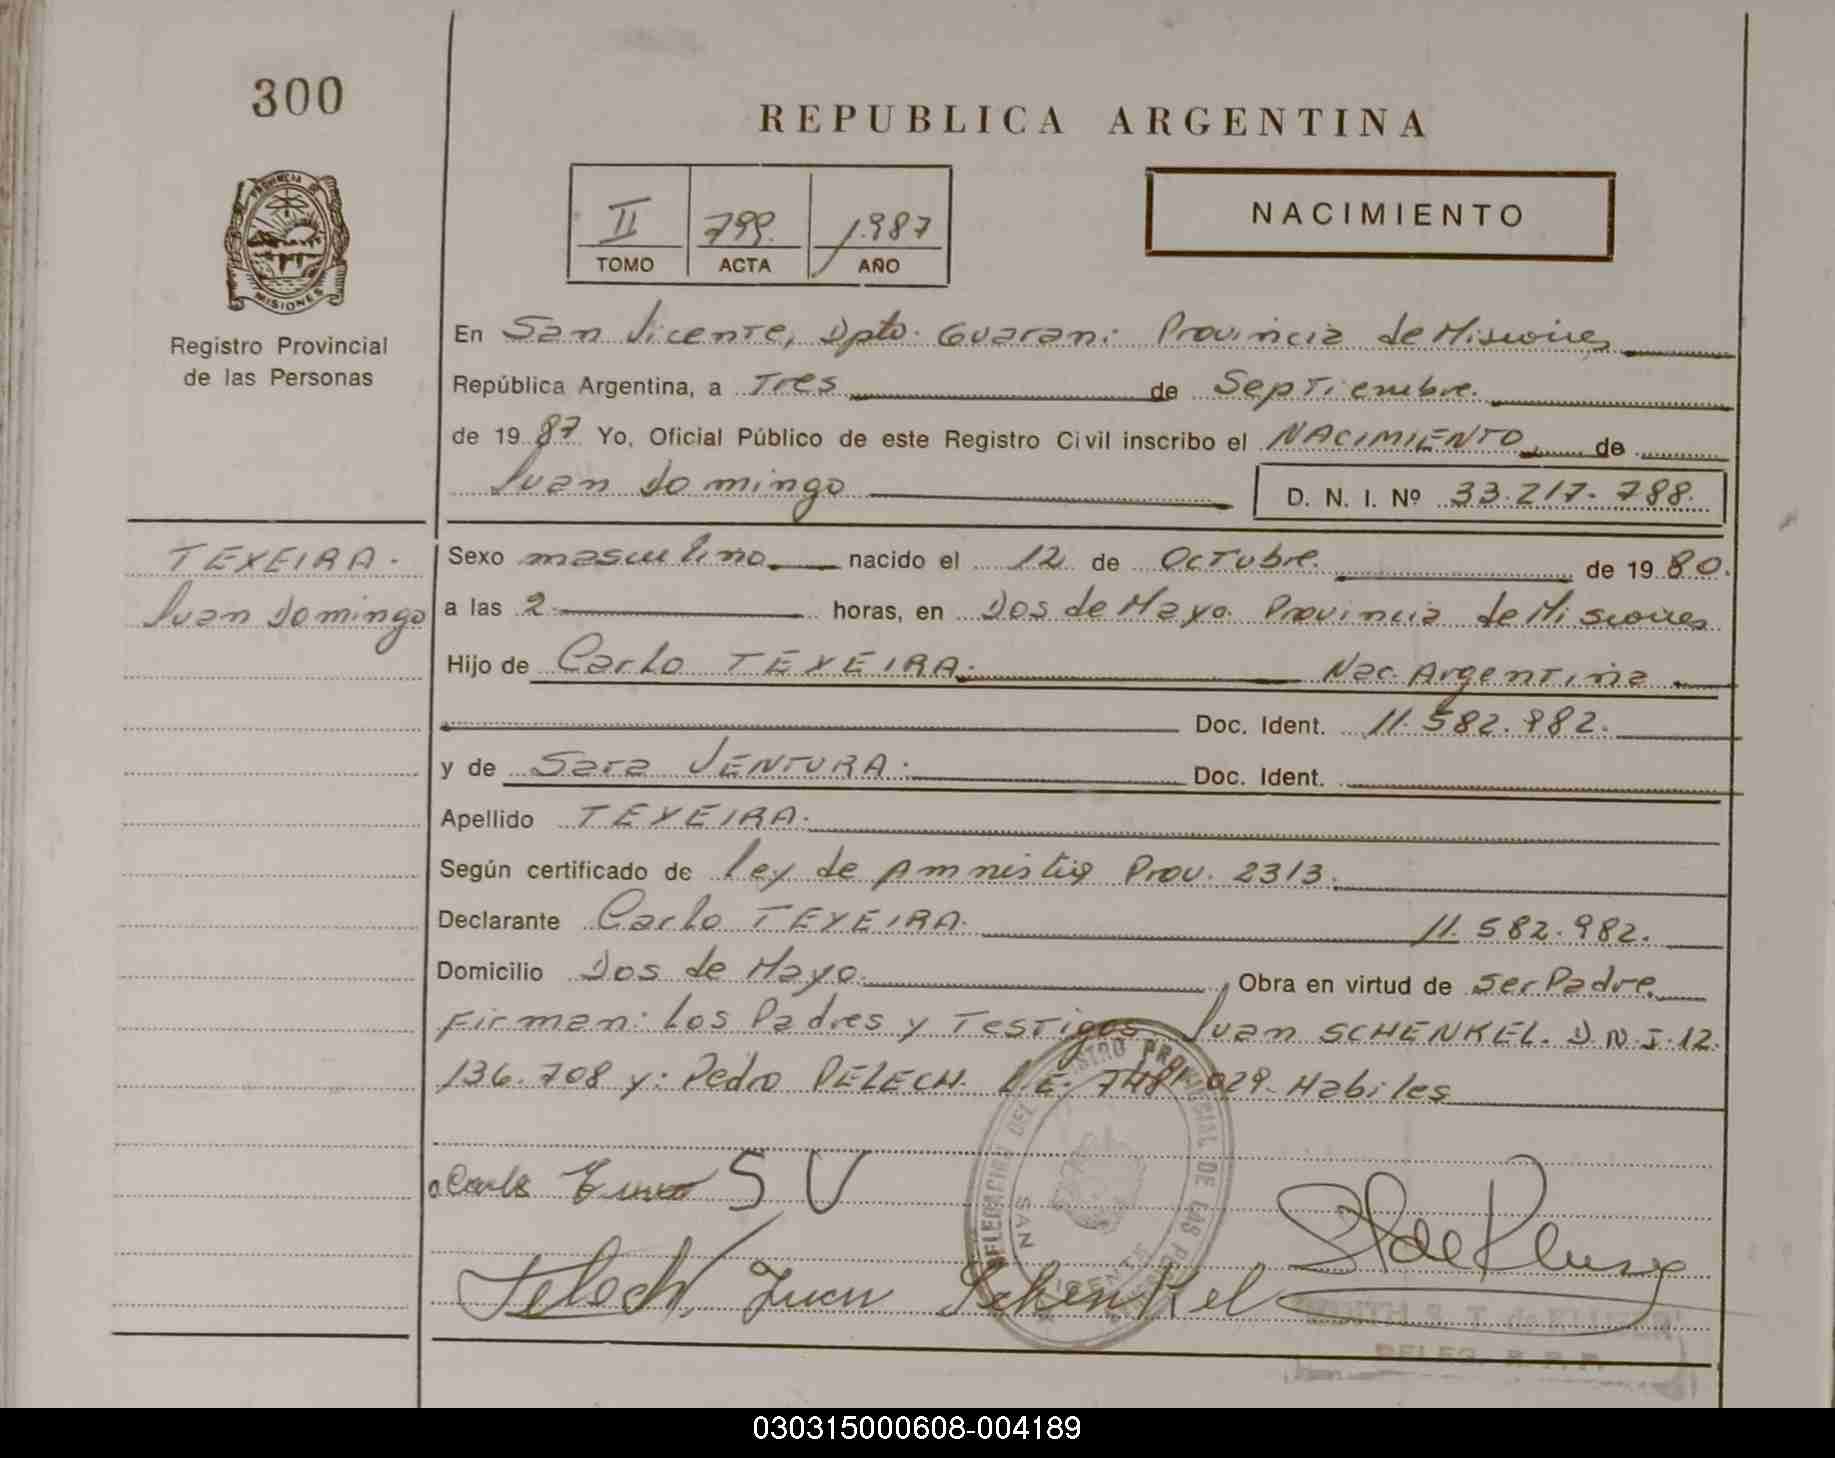 300
REPUBLICA ARGENTINA
PROVINCIA DE
MISIONES
II 799. 1.987
TOMO ACTA AÑO
NACIMIENTO
Registro Provincial
de las Personas
En San Vicente, Dpto. Guarani: Provincia de Misiones
República Argentina, a Tres de Septiembre.
de 19 87 Yo, Oficial Público de este Registro Civil inscribo el NACIMIENTO de
Juan Domingo D. N. I. Nº 33.217.788.
TEXEIRA.
Juan Domingo
Sexo masculino nacido el 12 de Octubre. de 19 80.
a las 2 horas, en Dos de Mayo. Provincia de Misiones
Hijo de Carlo TEXEIRA. Nac. Argentina
Doc. Ident. 11.582.982.
y de Sara VENTURA. Doc. Ident.
Apellido TEXEIRA.
Según certificado de Ley de Amnistia Prov. 2313.
Declarante Carlo TEXEIRA. 11.582.982.
Domicilio Dos de Mayo. Obra en virtud de Ser Padre.
Firman: Los Padres y Testigos Juan SCHENKEL. D.N.I. 12.
136.708 y: Pedro PELECH. L.E. 029. Habiles
Carlo S V
Pelech, Juan Schenkel
DELEGACION DEL REGISTRO PROVINCIAL DE LAS PERSONAS
SAN VICENTE
DELEG. R. P. P.
030315000608-004189